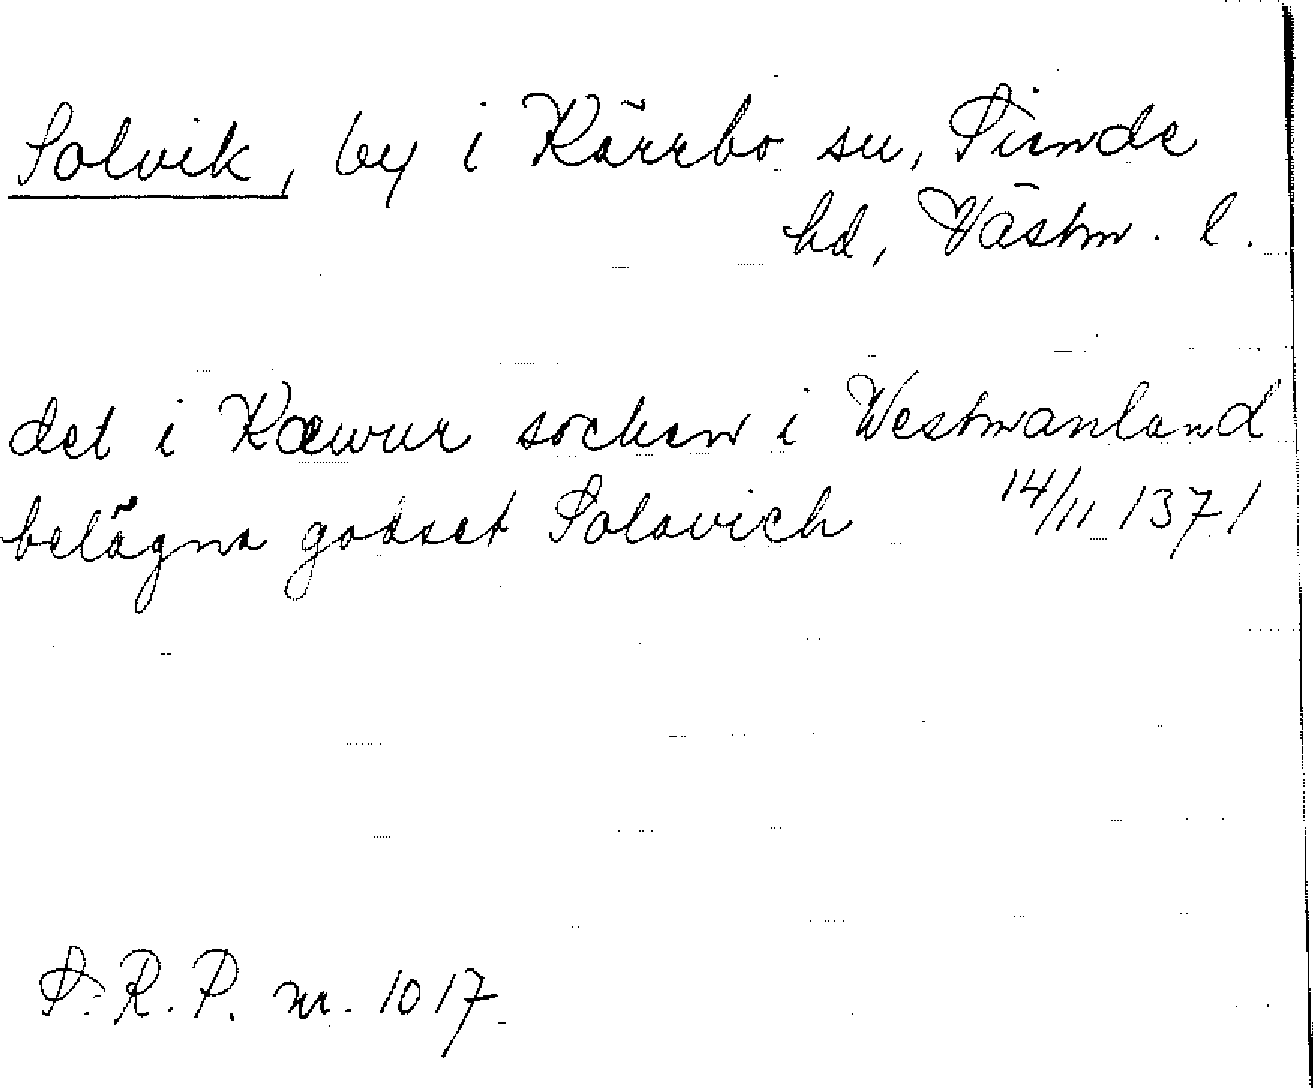 Solvik, by i Kärrbo sn, Siende
hd, Västm. l.
det i Kæwur socken i Westmanland
belägna godset Solavich 14/11 1371
S.R.P. nr. 1017